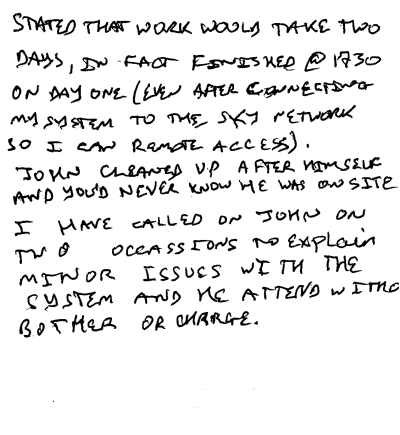 STATED THAT WORK WOULD TAKE TWO
DAYS, IN FACT FINISHED @ 1730
ON DAY ONE (EVEN AFTER CONNECTING
MY SYSTEM TO THE SKY NETWORK
SO I CAN REMOTE ACCESS).
JOHN CLEANED UP AFTER HIMSELF
AND YOU'D NEVER KNOW HE WAS ON SITE
I HAVE CALLED ON JOHN ON
TWO OCCASSIONS TO EXPLAIN
MINOR ISSUES WITH THE
SYSTEM AND HE ATTEND WITHO
BOTHER OR CHARGE.